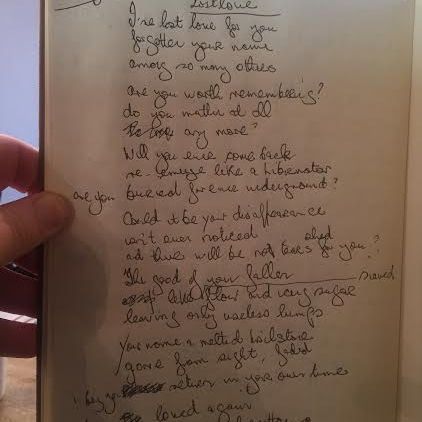 Lost love
I've lost love for you
forgotten your name
among so many others
are you worth remembering?
do you matter at all
any more?
Will you ever come back
re-emerge like a hibernator
are you buried for ever underground?
Could it be your disappearance
isn't ever noticed
and there will be not tears shed for you?
The good of your fallen
sieved
like flour and icing sugar
leaving only useless lumps
Your name a melted
gone from sight, faded
return in your own time
loved again